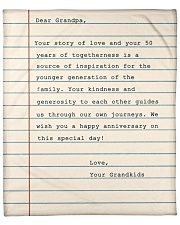 Dear Grandpa,
Your story of love and your 50
years of togetherness is a
source of inspiration for the
younger generation of the
family. Your kindness and
generosity to each other guides
us through our own journeys. We
wish you a happy anniversary on
this special day!
Love,
Your Grandkids